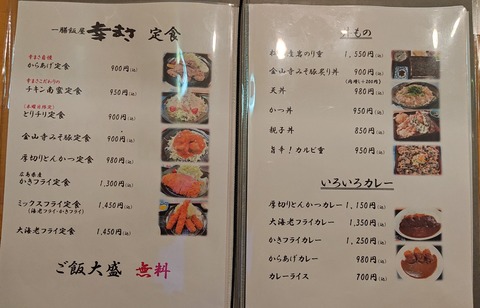 一膳飯屋 幸まさ 定食
幸まさ自慢
からあげ定食 900円(込)
幸まさこだわりの
チキン南蛮定食 950円(込)
(木曜日限定)
とりチリ定食 900円(込)
金山寺みそ豚定食 900円(込)
厚切りとんかつ定食 980円(込)
広島県産
かきフライ定食 1,300円(込)
ミックスフライ定食 1,450円(込)
(海老フライ・かきフライ)
大海老フライ定食 1,450円(込)
ご飯大盛 無料
もの
のり重 1,550円(込)
金山寺みそ豚炙り丼 900円(込)
(肉増し+200円)
天丼 980円(込)
かつ丼 950円(込)
親子丼 850円(込)
旨辛!カルビ重 950円(込)
いろいろカレー
厚切りとんかつカレー 1,150円(込)
大海老フライカレー 1,350円(込)
かきフライカレー 1,250円(込)
からあげカレー 980円(込)
カレーライス 700円(込)